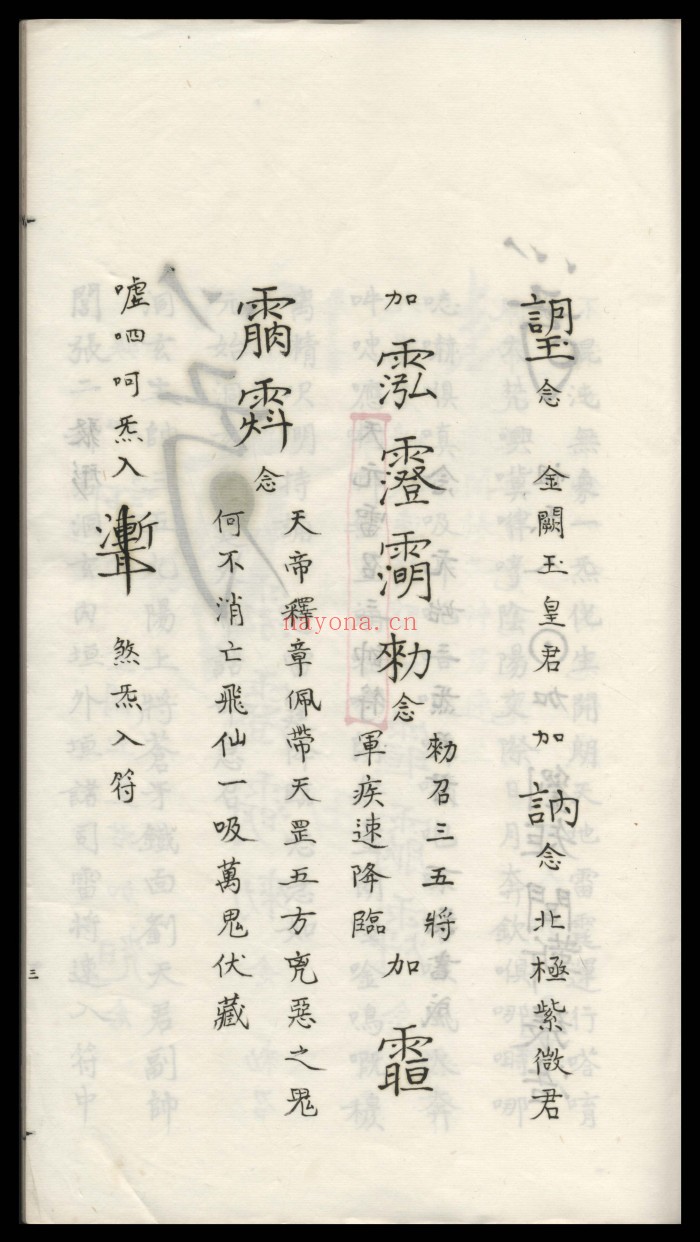 念 金闕玉皇君 加 訥 念 北極紫微君
加 勑 念
勑召三五將
軍疾速降臨
加
念
天帝釋章佩帶天罡五方兇惡之鬼
何不消亡飛仙一吸萬鬼伏藏
噓呬呵炁入 煞炁入符
三
nayona.cn